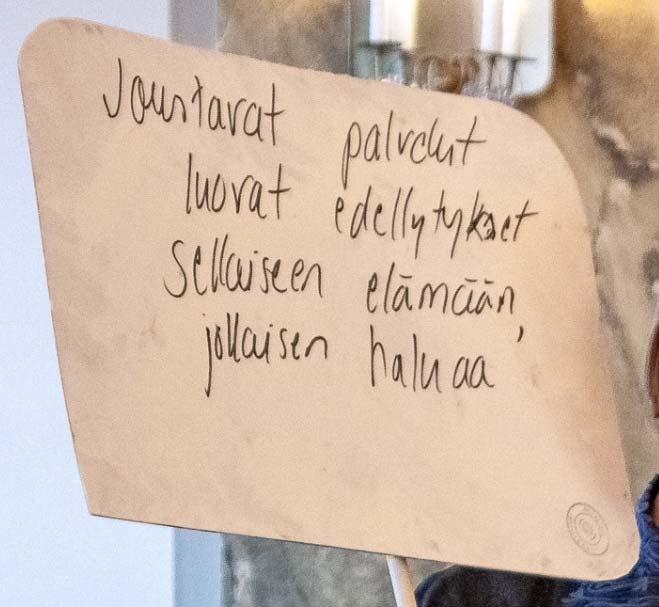 Joustavat palvelut
luovat edellytykset
sellaiseen elämään,
jollaisen haluaa